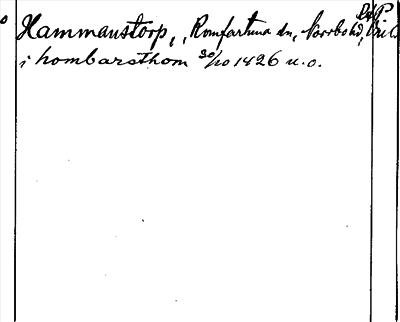 Hammanstorp, Romfartuna sn, Norrbo hd,
i hombarsthom 30/10 1426 u.o.